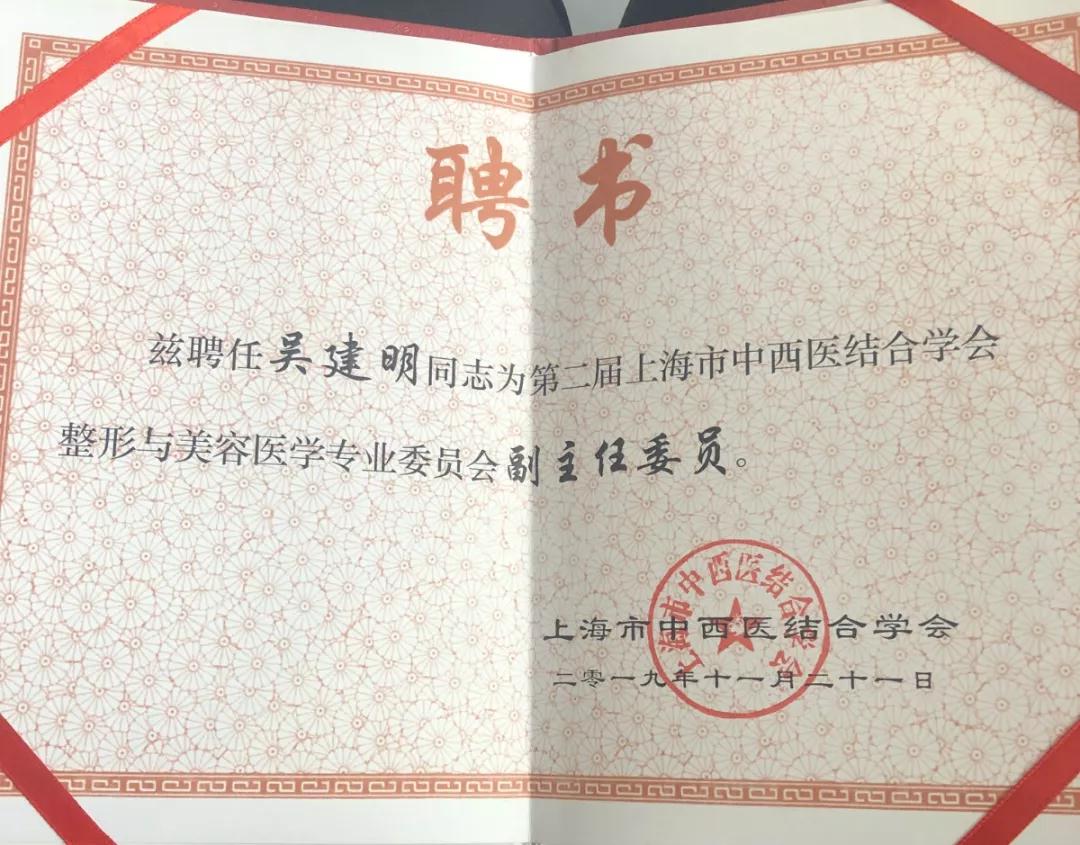 聘书
兹聘任吴建明同志为第二届上海市中西医结合学会
整形与美容医学专业委员会副主任委员。
上海市中西医结合学会
上海市中西医结合学会
二零一九年十一月二十一日